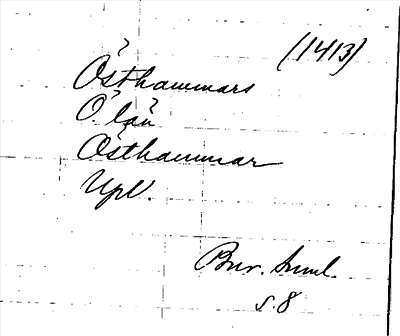 (1413)
Östhammars
Ö. län
Östhammar
Upl.
Bur. Suml.
s. 8